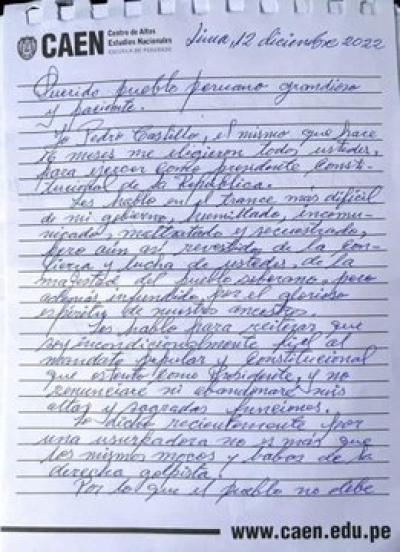 CAEN
Centro de Altos
Estudios Nacionales
ESCUELA DE POSGRADO
Lima, 12 diciembre 2022
Querido pueblo peruano grandioso
y paciente.
Yo Pedro Castillo, el mismo que hace
16 meses me eligieron todos ustedes,
para ejercer como presidente Consti-
tucional de la República.
Les hablo en el trance más difícil
de mi gobierno, humillado, incomu-
nicado, maltratado y secuestrado,
pero aún así revestido de la con-
fianza y lucha de ustedes, de la
majestad del pueblo soberano, pero
además infundido por el glorioso
espíritu de nuestros ancestros.
Les hablo para reiterar que
soy incondicionalmente fiel al
mandato popular y Constitucional
que ostento como presidente, y no
renunciaré ni abandonaré mis
altas y sagradas funciones.
Lo dicho recientemente por
una usurpadora no es más que
los mismos mocos y babas de la
derecha golpista.
Por lo que el pueblo no debe
www.caen.edu.pe